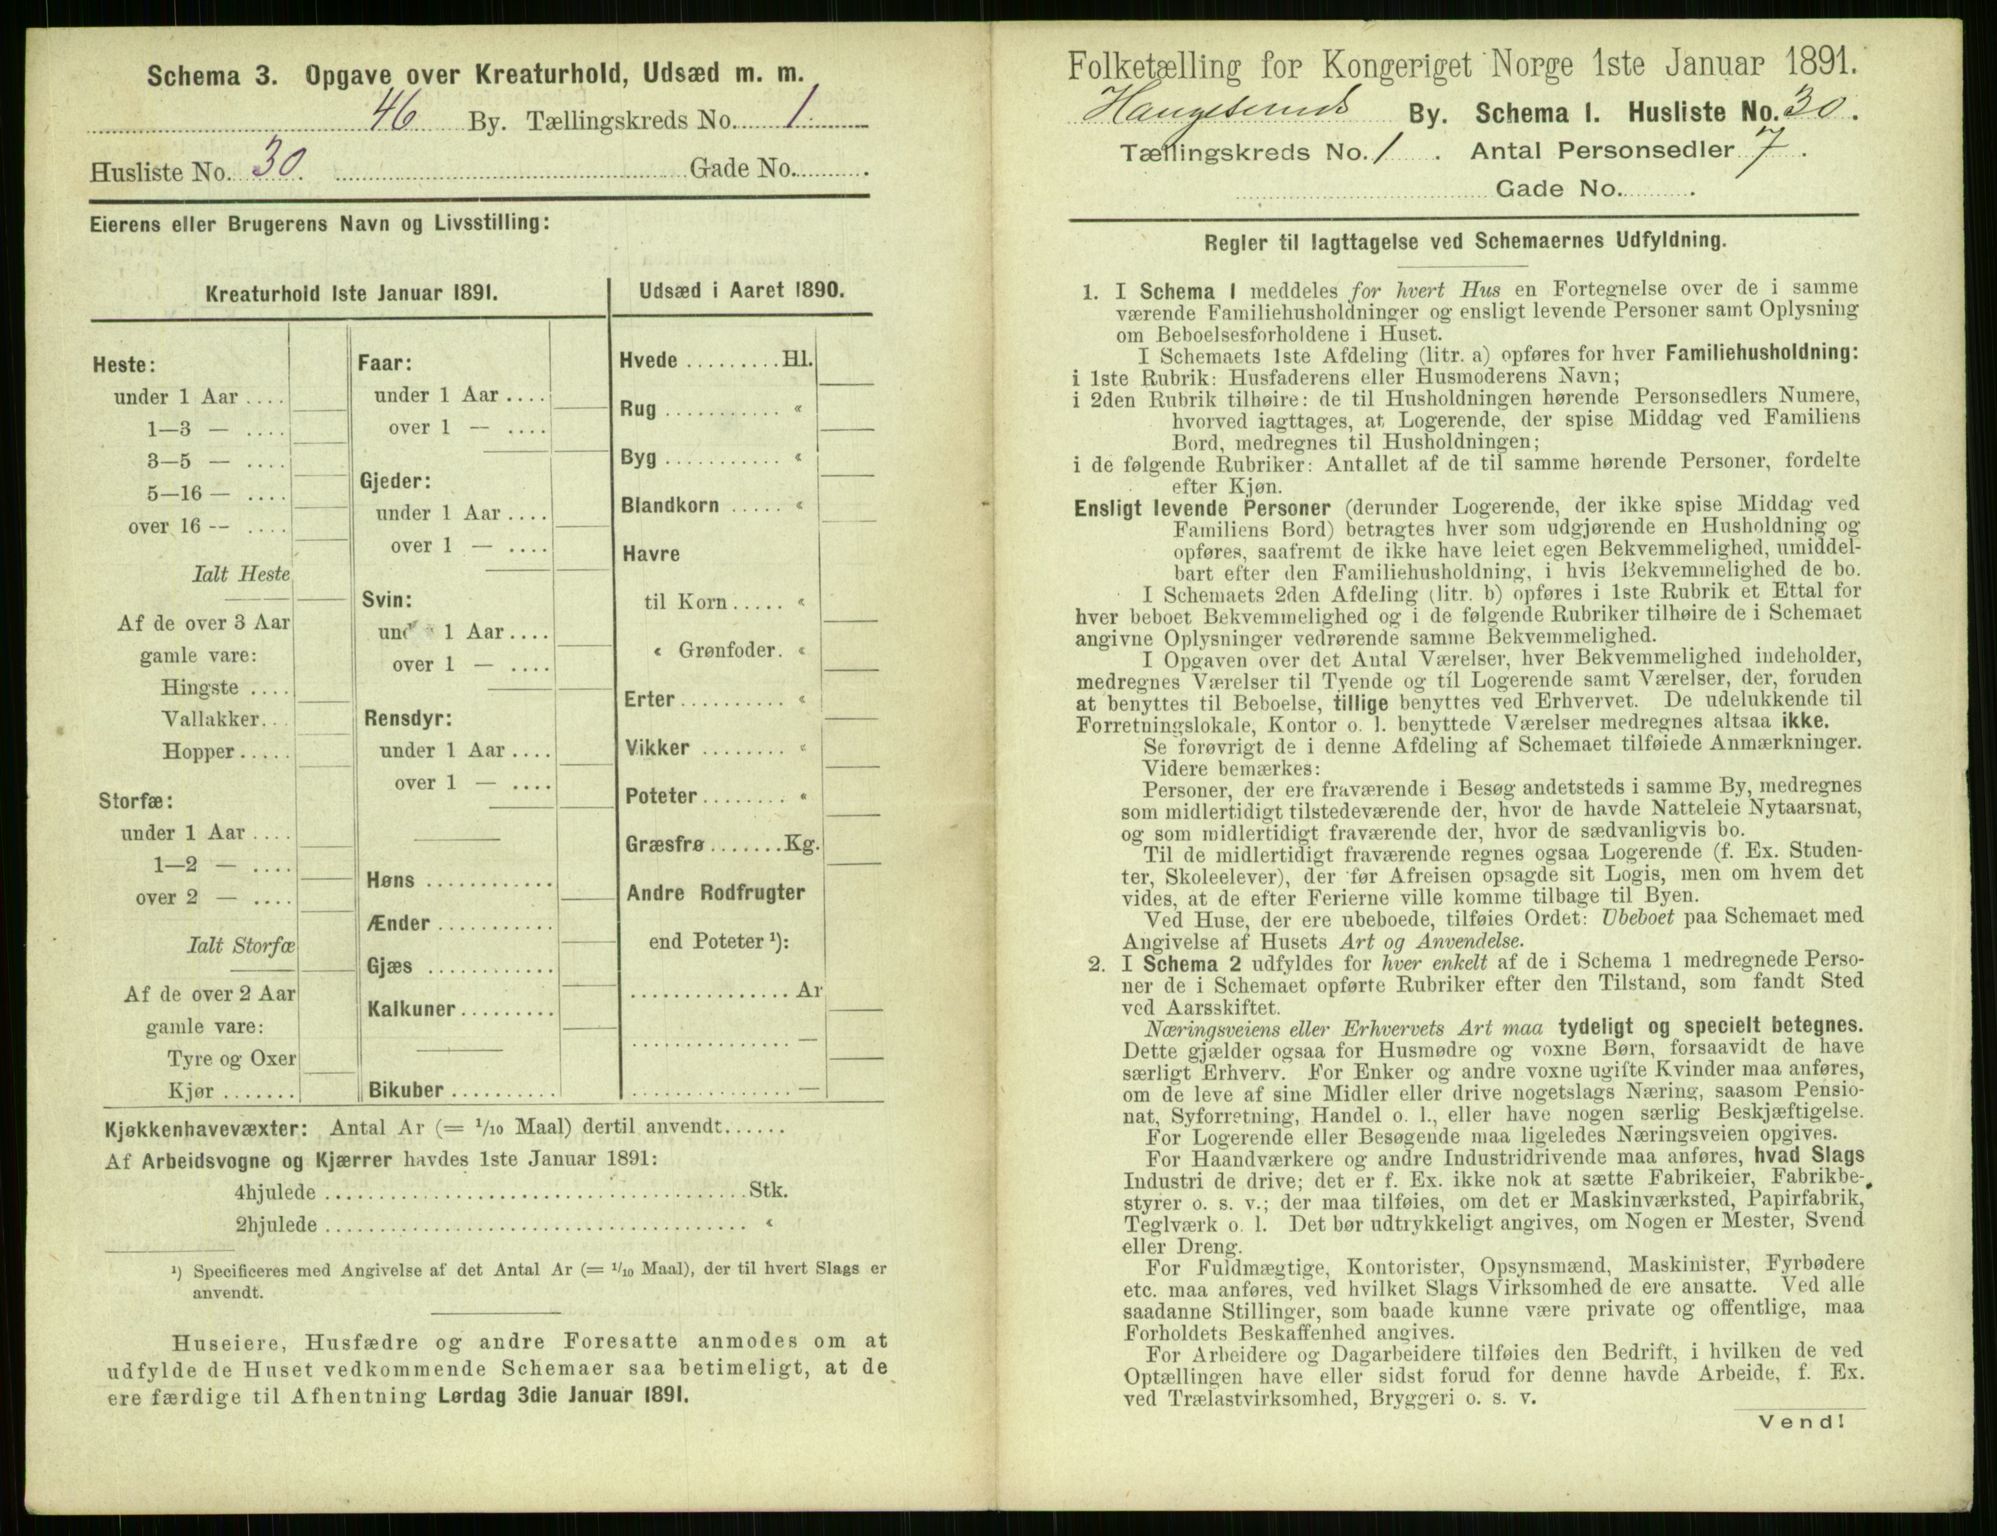 Schema 3. Opgave over Kreaturhold, Udsæd m. m.
46 By. Tællingskreds No. 1.
Husliste No. 30. Gade No. .
Eierens eller Brugerens Navn og Livsstilling:
Kreaturhold 1ste Januar 1891.
Heste:
under 1 Aar ....
1—3 — ....
3—5 — ....
5—16 — ....
over 16 -- ....
Ialt Heste
Af de over 3 Aar
gamle vare:
Hingste ....
Vallakker...
Hopper.....
Storfæ:
under 1 Aar ....
1—2 — ....
over 2 — ....
Ialt Storfæ
Af de over 2 Aar
gamle vare:
Tyre og Oxer
Kjør .......
Faar:
under 1 Aar ....
over 1 — ....
Gjeder:
under 1 Aar ....
over 1 — ....
Svin:
und 1 Aar ....
over 1 — ....
Rensdyr:
under 1 Aar ....
over 1 — ....
Høns ............
Ænder ...........
Gjæs ............
Kalkuner.........
Bikuber ..........
Udsæd i Aaret 1890.
Hvede .........Hl.
Rug ........... «
Byg ........... «
Blandkorn ..... «
Havre
til Korn..... «
« Grønfoder. «
Erter.......... «
Vikker ........ «
Poteter........ «
Græsfrø.......Kg.
Andre Rodfrugter
end Poteter ¹):
...............Ar
...............—
...............—
Kjøkkenhavevæxter: Antal Ar (= 1/10 Maal) dertil anvendt......
Af Arbeidsvogne og Kjærrer havdes 1ste Januar 1891:
4hjulede ........................................Stk.
2hjulede ........................................ «
¹) Specificeres med Angivelse af det Antal Ar (= 1/10 Maal), der til hvert Slags er
anvendt.
Huseiere, Husfædre og andre Foresatte anmodes om at
udfylde de Huset vedkommende Schemaer saa betimeligt, at de
ere færdige til Afhentning Lørdag 3die Januar 1891.
Folketælling for Kongeriget Norge 1ste Januar 1891.
Haugesunds By. Schema 1. Husliste No. 30.
Tællingskreds No. 1. Antal Personsedler 7.
Gade No. .
Regler til Iagttagelse ved Schemaernes Udfyldning.
1. I Schema 1 meddeles for hvert Hus en Fortegnelse over de i samme
værende Familiehusholdninger og ensligt levende Personer samt Oplysning
om Beboelsesforholdene i Huset.
I Schemaets 1ste Afdeling (litr. a) opføres for hver Familiehusholdning:
i 1ste Rubrik: Husfaderens eller Husmoderens Navn;
i 2den Rubrik tilhøire: de til Husholdningen hørende Personsedlers Numere,
hvorved iagttages, at Logerende, der spise Middag ved Familiens
Bord, medregnes til Husholdningen;
i de følgende Rubriker: Antallet af de til samme hørende Personer, fordelte
efter Kjøn.
Ensligt levende Personer (derunder Logerende, der ikke spise Middag ved
Familiens Bord) betragtes hver som udgjørende en Husholdning og
opføres, saafremt de ikke have leiet egen Bekvemmelighed, umiddel-
bart efter den Familiehusholdning, i hvis Bekvemmelighed de bo.
I Schemaets 2den Afdeling (litr. b) opføres i 1ste Rubrik et Ettal for
hver beboet Bekvemmelighed og i de følgende Rubriker tilhøire de i Schemaet
angivne Oplysninger vedrørende samme Bekvemmelighed.
I Opgaven over det Antal Værelser, hver Bekvemmelighed indeholder,
medregnes Værelser til Tyende og til Logerende samt Værelser, der, foruden
at benyttes til Beboelse, tillige benyttes ved Erhvervet. De udelukkende til
Forretningslokale, Kontor o. l. benyttede Værelser medregnes altsaa ikke.
Se forøvrigt de i denne Afdeling af Schemaet tilføiede Anmærkninger.
Videre bemærkes:
Personer, der ere fraværende i Besøg andetsteds i samme By, medregnes
som midlertidigt tilstedeværende der, hvor de havde Natteleie Nytaarsnat,
og som midlertidigt fraværende der, hvor de sædvanligvis bo.
Til de midlertidigt fraværende regnes ogsaa Logerende (f. Ex. Studen-
ter, Skoleelever), der før Afreisen opsagde sit Logis, men om hvem det
vides, at de efter Ferierne ville komme tilbage til Byen.
Ved Huse, der ere ubeboede, tilføies Ordet: Ubeboet paa Schemaet med
Angivelse af Husets Art og Anvendelse.
2. I Schema 2 udfyldes for hver enkelt af de i Schema 1 medregnede Perso-
ner de i Schemaet opførte Rubriker efter den Tilstand, som fandt Sted
ved Aarsskiftet.
Næringsveiens eller Erhvervets Art maa tydeligt og specielt betegnes.
Dette gjælder ogsaa for Husmødre og voxne Børn, forsaavidt de have
særligt Erhverv. For Enker og andre voxne ugifte Kvinder maa anføres,
om de leve af sine Midler eller drive nogetslags Næring, saasom Pensio-
nat, Syforretning, Handel o. l., eller have nogen særlig Beskjæftigelse.
For Logerende eller Besøgende maa ligeledes Næringsveien opgives.
For Haandværkere og andre Industridrivende maa anføres, hvad Slags
Industri de drive; det er f. Ex. ikke nok at sætte Fabrikeier, Fabrikbe-
styrer o. s. v.; der maa tilføies, om det er Maskinværksted, Papirfabrik,
Teglværk o. l. Det bør udtrykkeligt angives, om Nogen er Mester, Svend
eller Dreng.
For Fuldmægtige, Kontorister, Opsynsmænd, Maskinister, Fyrbødere
etc. maa anføres, ved hvilket Slags Virksomhed de ere ansatte. Ved alle
saadanne Stillinger, som baade kunne være private og offentlige, maa
Forholdets Beskaffenhed angives.
For Arbeidere og Dagarbeidere tilføies den Bedrift, i hvilken de ved
Optællingen have eller sidst forud for denne havde Arbeide, f. Ex.
ved Trælastvirksomhed, Bryggeri o. s. v.
Vend!